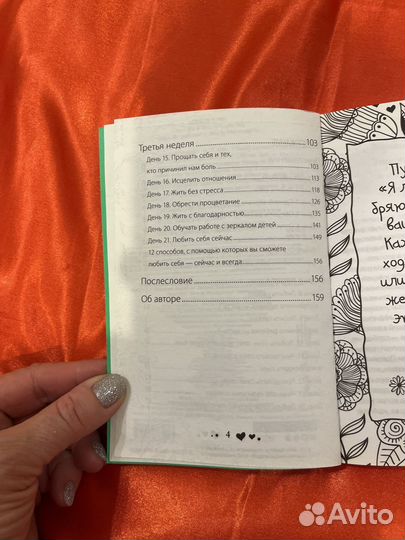 Третья неделя 103
День 15. Прощать себя и тех,
кто причинил нам боль 103
День 16. Исцелить отношения 113
День 17. Жить без стресса 118
День 18. Обрести процветание 126
День 19. Жить с благодарностью 135
День 20. Обучать работе с зеркалом детей 141
День 21. Любить себя сейчас 149
12 способов, с помощью которых вы сможете
любить себя — сейчас и всегда 156
Послесловие 156
Об авторе 159
4
Пу
«Я л
бряю
ваш
Каж
ход
или
же
эт
Avito